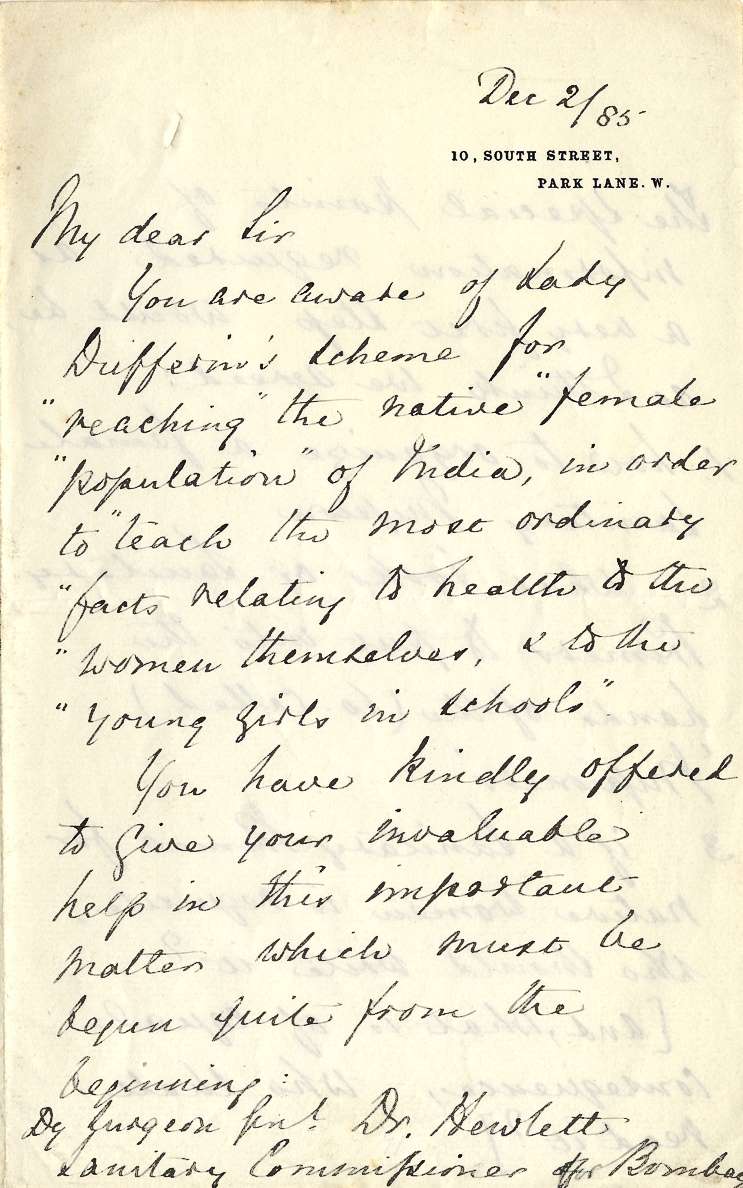 Dec 2/85
10, SOUTH STREET,
PARK LANE. W.
My dear Sir
You are aware of Lady
Dufferin's scheme for
"reaching" the native "female
"population" of India, in order
to "teach the most ordinary
"facts relating to health to the
"women themselves, & to the
"young girls in schools".
You have kindly offered
to give your invaluable
help in this important
matter which must be
begun quite from the
beginning:
Dy Surgeon Genl. Dr. Hewlett
Sanitary Commissioner for Bombay